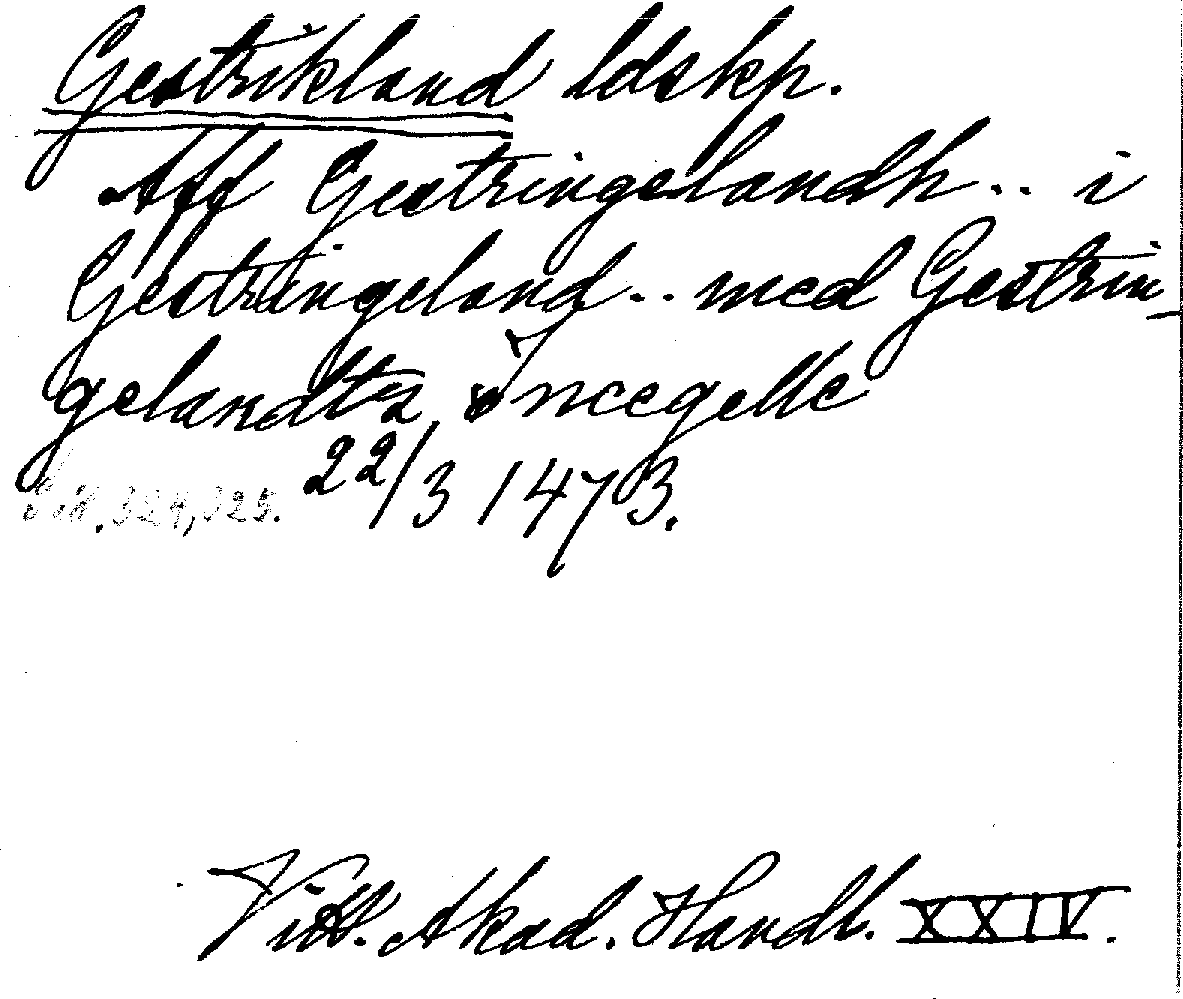 Gestrikland ldskp.
Aff Gestringelandh .. i
Gestringeland .. med Gestrin-
gelandz Incegelle
22/3 1473.
324, 325.
Vitt. Akad. Handl. XXIV.